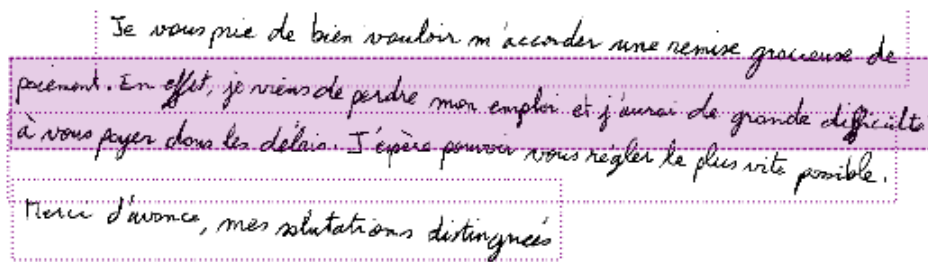 Je vous prie de bien vouloir m'accorder une remise gracieuse de
paiement. En effet, je viens de perdre mon emploi et j'aurai de grande difficulte
à vous payer dans les délais. J'éspère pouvoir vous régler le plus vite possible.
Merci d'avance, mes slutations distinguées